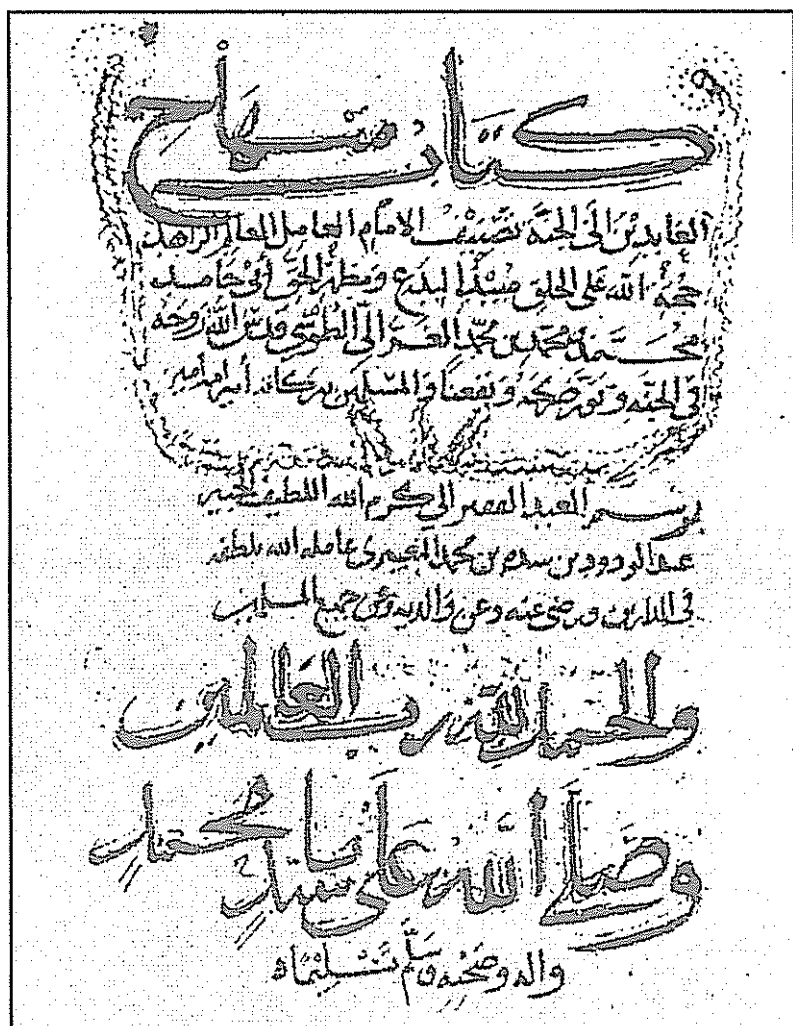 كتاب منهاج
العابدين الى الجنة تصنيف الامام العامل العالم الزاهد
حجة الله على الخلق مبيد البدع ومظهر الحق أبي حامد
محمد بن محمد بن محمد الغزالي الطوسي قدس الله روحه
في الجنة ونور ضريحه ونفعنا والمسلمين ببركاته أمين امين
برسم العبد الفقير الى كرم الله اللطيف الخبير
عبد الودود بن سدم بن محمد عامله الله بلطفه
في الدارين ورضي عنه وعن والديه وعن جميع المسلمين
والحمد لله رب العالمين
وصلى الله على سيدنا محمد
واله وصحبه وسلم تسليما